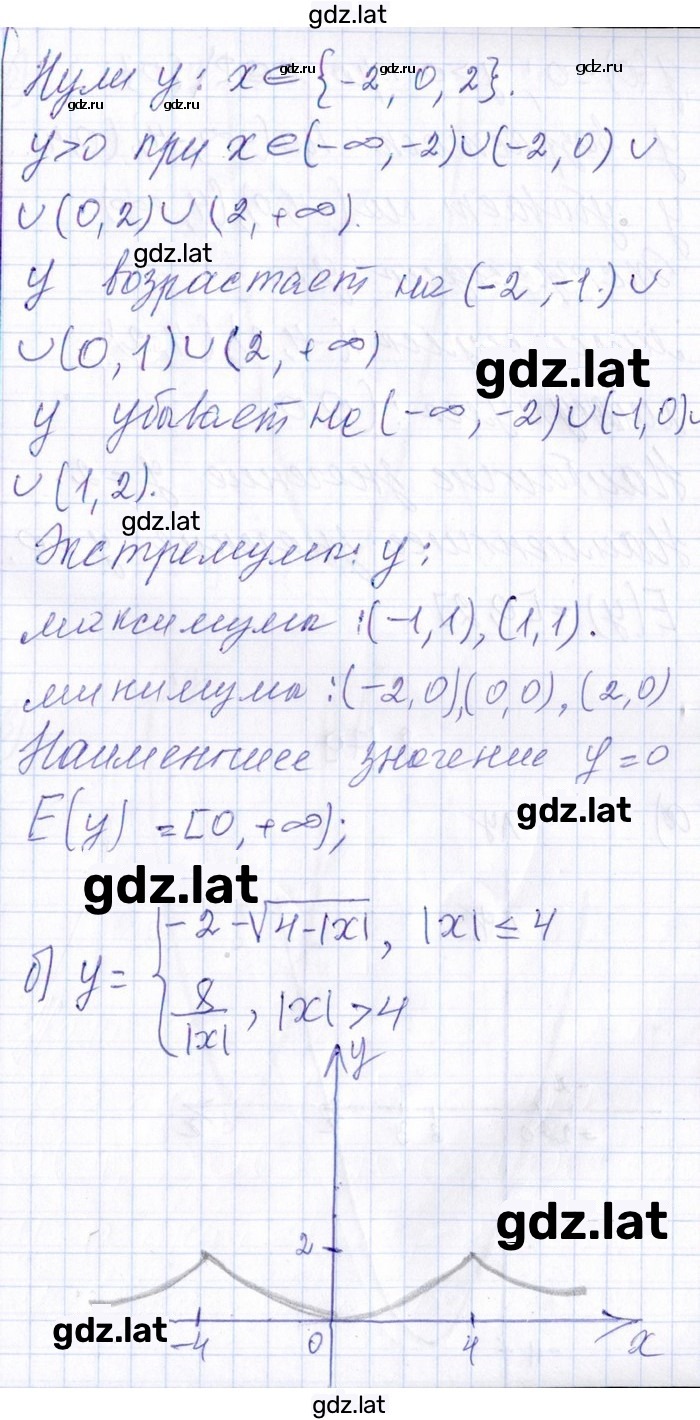 gdz.lat
Нули y: x∈{-2, 0, 2}.
gdz.ru gdz.ru gdz.ru
gdz.ru gdz.ru gdz.ru
y>0 при x∈(-∞,-2)∪(-2,0)∪
∪(0,2)∪(2,+∞).
gdz.lat
y возрастает на (-2,-1)∪
∪(0,1)∪(2,+∞)
gdz.lat
y убывает на (-∞,-2)∪(-1,0)∪
∪(1,2).
gdz.lat
Экстремумы y:
максимумы:(-1,1),(1,1).
минимумы:(-2,0),(0,0),(2,0)
Наименьшее значение y=0
gdz.lat
E(y) =[0,+∞);
gdz.lat
б) y= { -2-√4-|x|, |x|≤4
8/|x|, |x|>4
y
gdz.lat
2
gdz.lat
-4 0 4 x
gdz.lat